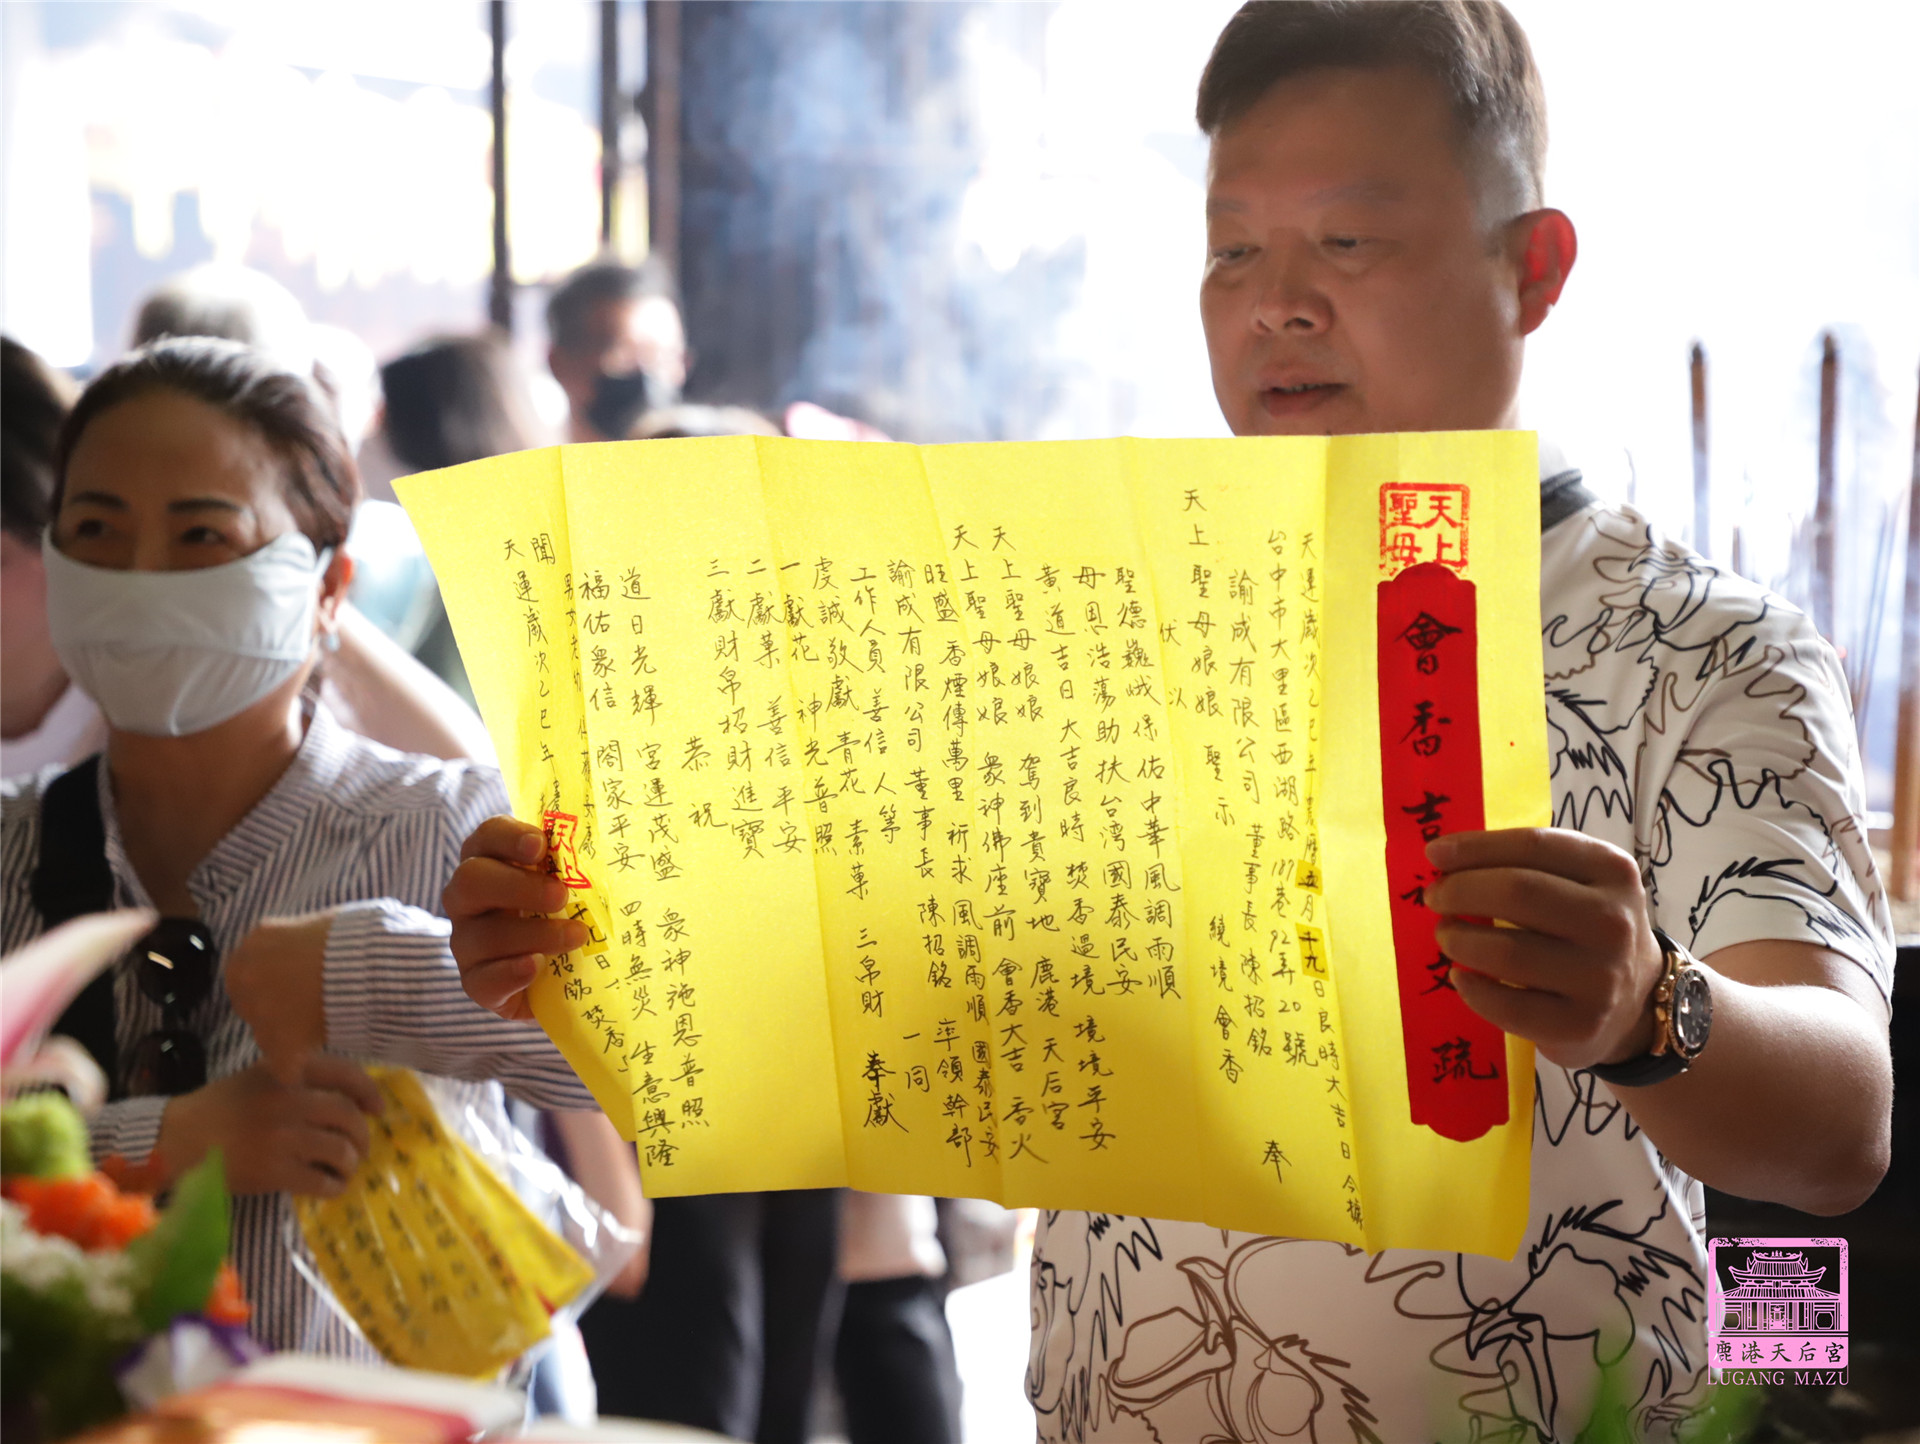 天上
聖母
會香吉祥文疏
天運歲次乙巳年農曆五月十九日良時大吉日今據
台中市大里區西湖路187巷92弄20號
諭成有限公司 董事長 陳招銘 奉
天上聖母娘娘 聖示 繞境會香
伏以
聖德巍峨 保佑中華風調雨順
母恩浩蕩助扶台湾國泰民安 境境平安
黃道吉日大吉良時 焚香過境
天上聖母娘娘 駕到貴寶地 鹿港 天后宮
天上聖母娘娘 眾神佛座前 會香大吉 香火
旺盛 香煙傳萬里 祈求風調雨順 國泰民安
諭成有限公司 董事長 陳招銘 率領幹部
工作人員 善信人等 一同
虔誠敬獻 青花 素菓 三帛財 奉獻
一獻花 神光普照
二獻菓 善信平安
三獻財帛招財進寶
恭祝
道日光輝 宮運茂盛 眾神施恩普照
福佑眾信 閤家平安 四時無災 生意興隆
男女老幼
聞
招銘 焚香
天運歲次乙巳年
十九日
天上
鹿港天后宮
LUGANG MAZU